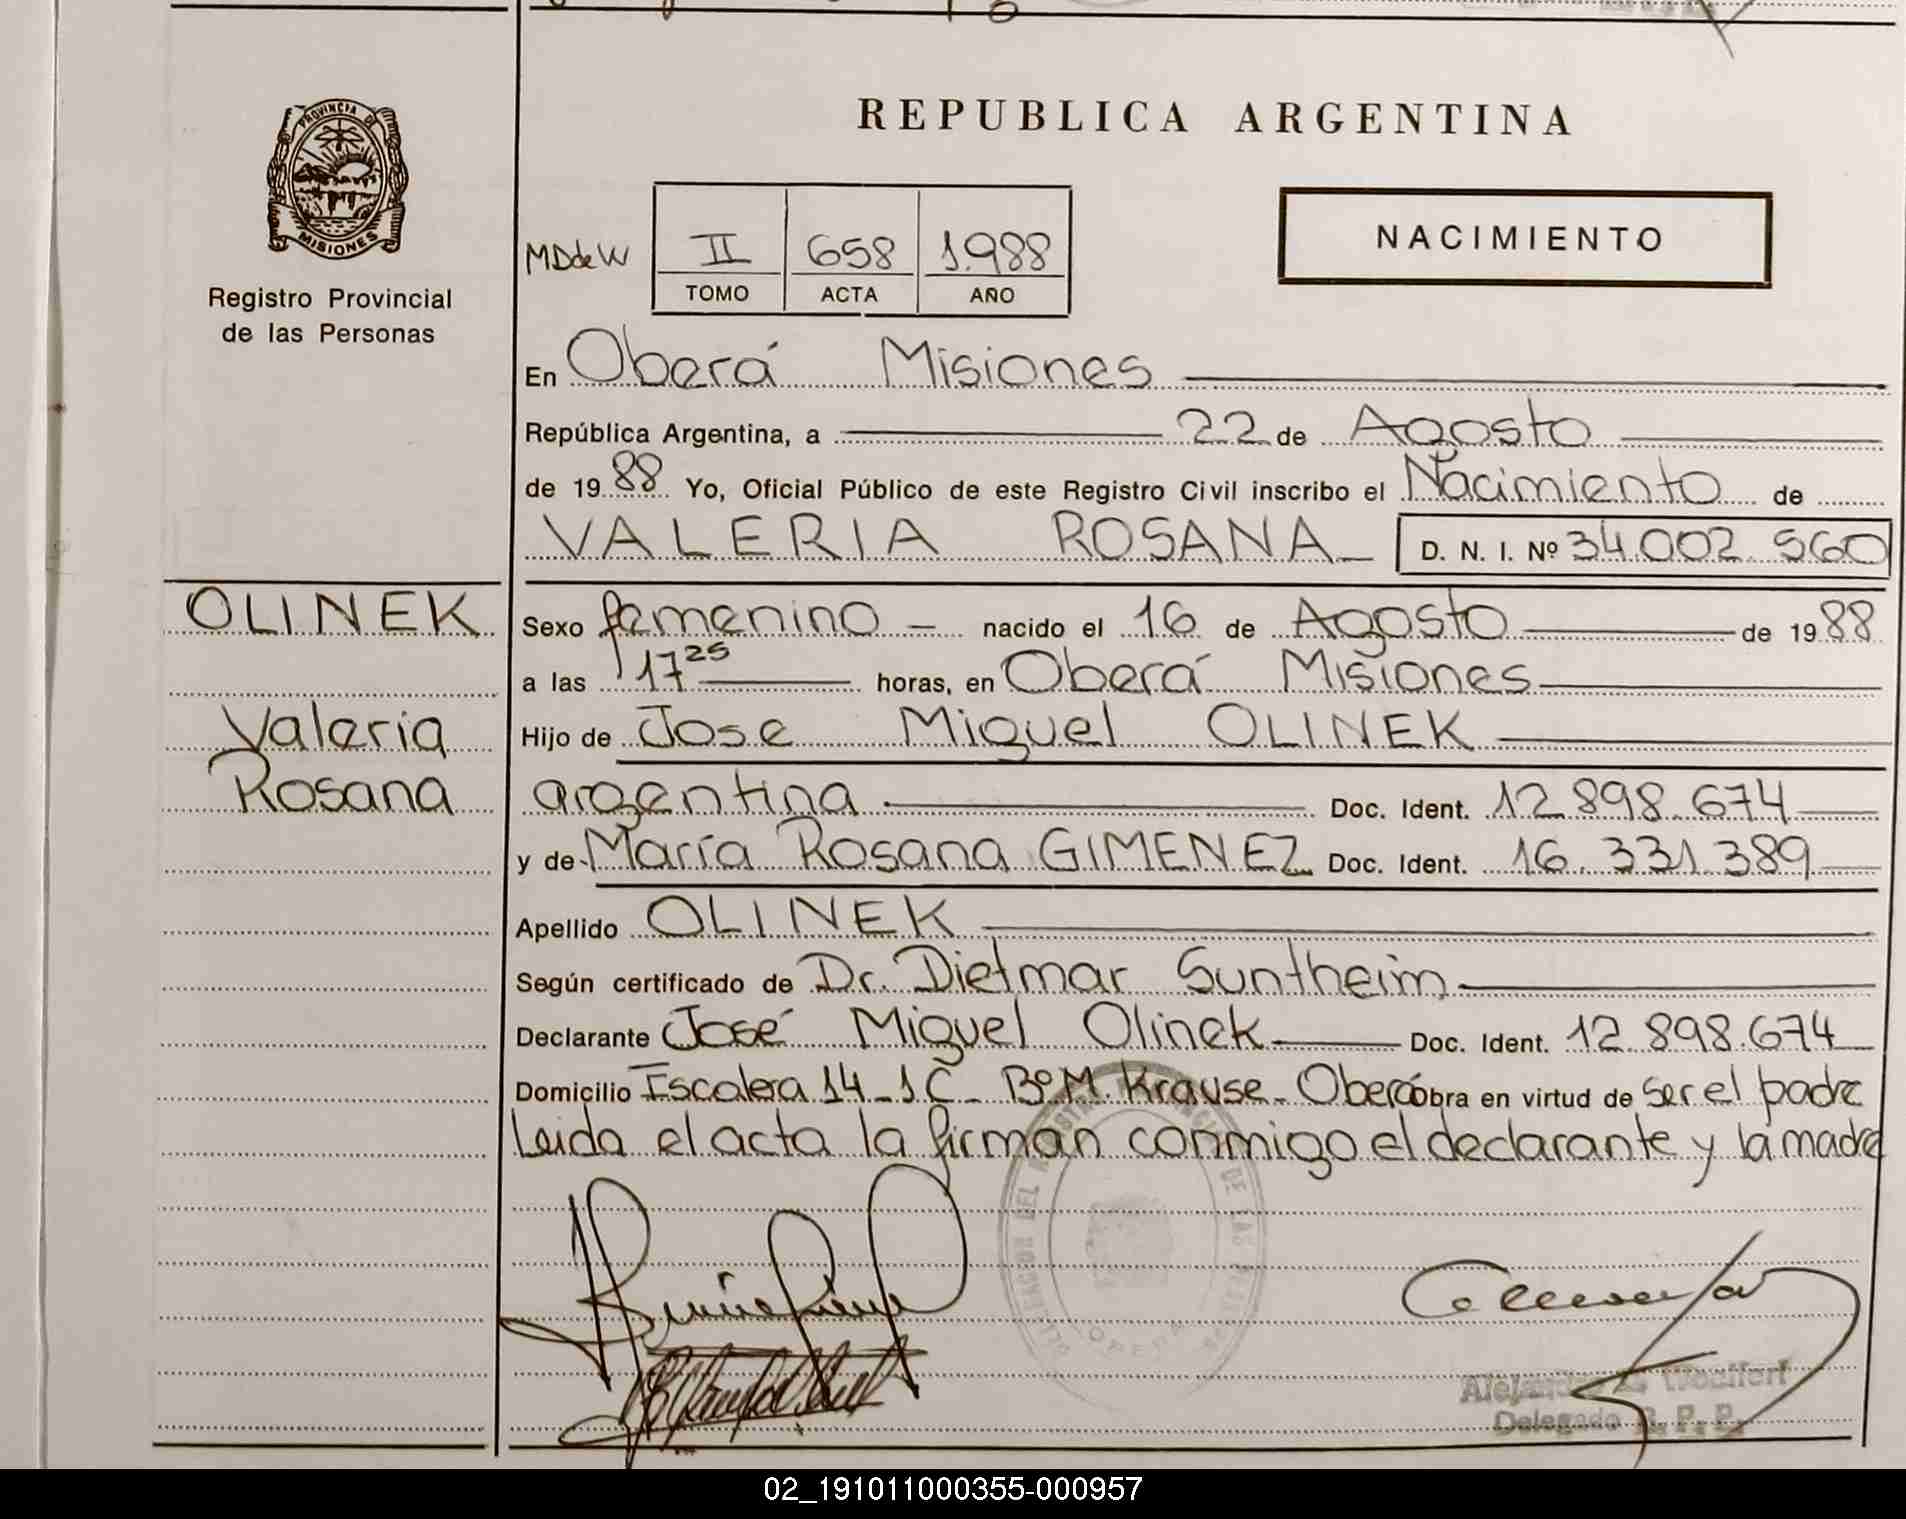 REPUBLICA ARGENTINA
PROVINCIA DE
MISIONES
Registro Provincial
de las Personas
MDdeW II 658 1.988
TOMO ACTA AÑO
NACIMIENTO
En Oberá Misiones
República Argentina, a 22 de Agosto
de 1988 Yo, Oficial Público de este Registro Civil inscribo el Nacimiento de
VALERIA ROSANA D. N. I. Nº 34.002.560
OLINEK
Valeria
Rosana
Sexo femenino - nacido el 16 de Agosto de 1988
a las 17 25 horas, en Oberá Misiones
Hijo de Jose Miguel OLINEK
argentina Doc. Ident. 12.898.674
y de María Rosana GIMENEZ Doc. Ident. 16.331.389
Apellido OLINEK
Según certificado de Dr. Dietmar Suntheim
Declarante José Miguel Olinek Doc. Ident. 12.898.674
Domicilio Escalera 14-1C- Bº M. Krause- Oberá obra en virtud de ser el padre
Leida el acta la firman conmigo el declarante y la madre
DEL REGISTRO PROVINCIAL DE LAS
OBERA
Delegado R. P. P.
02_191011000355-000957